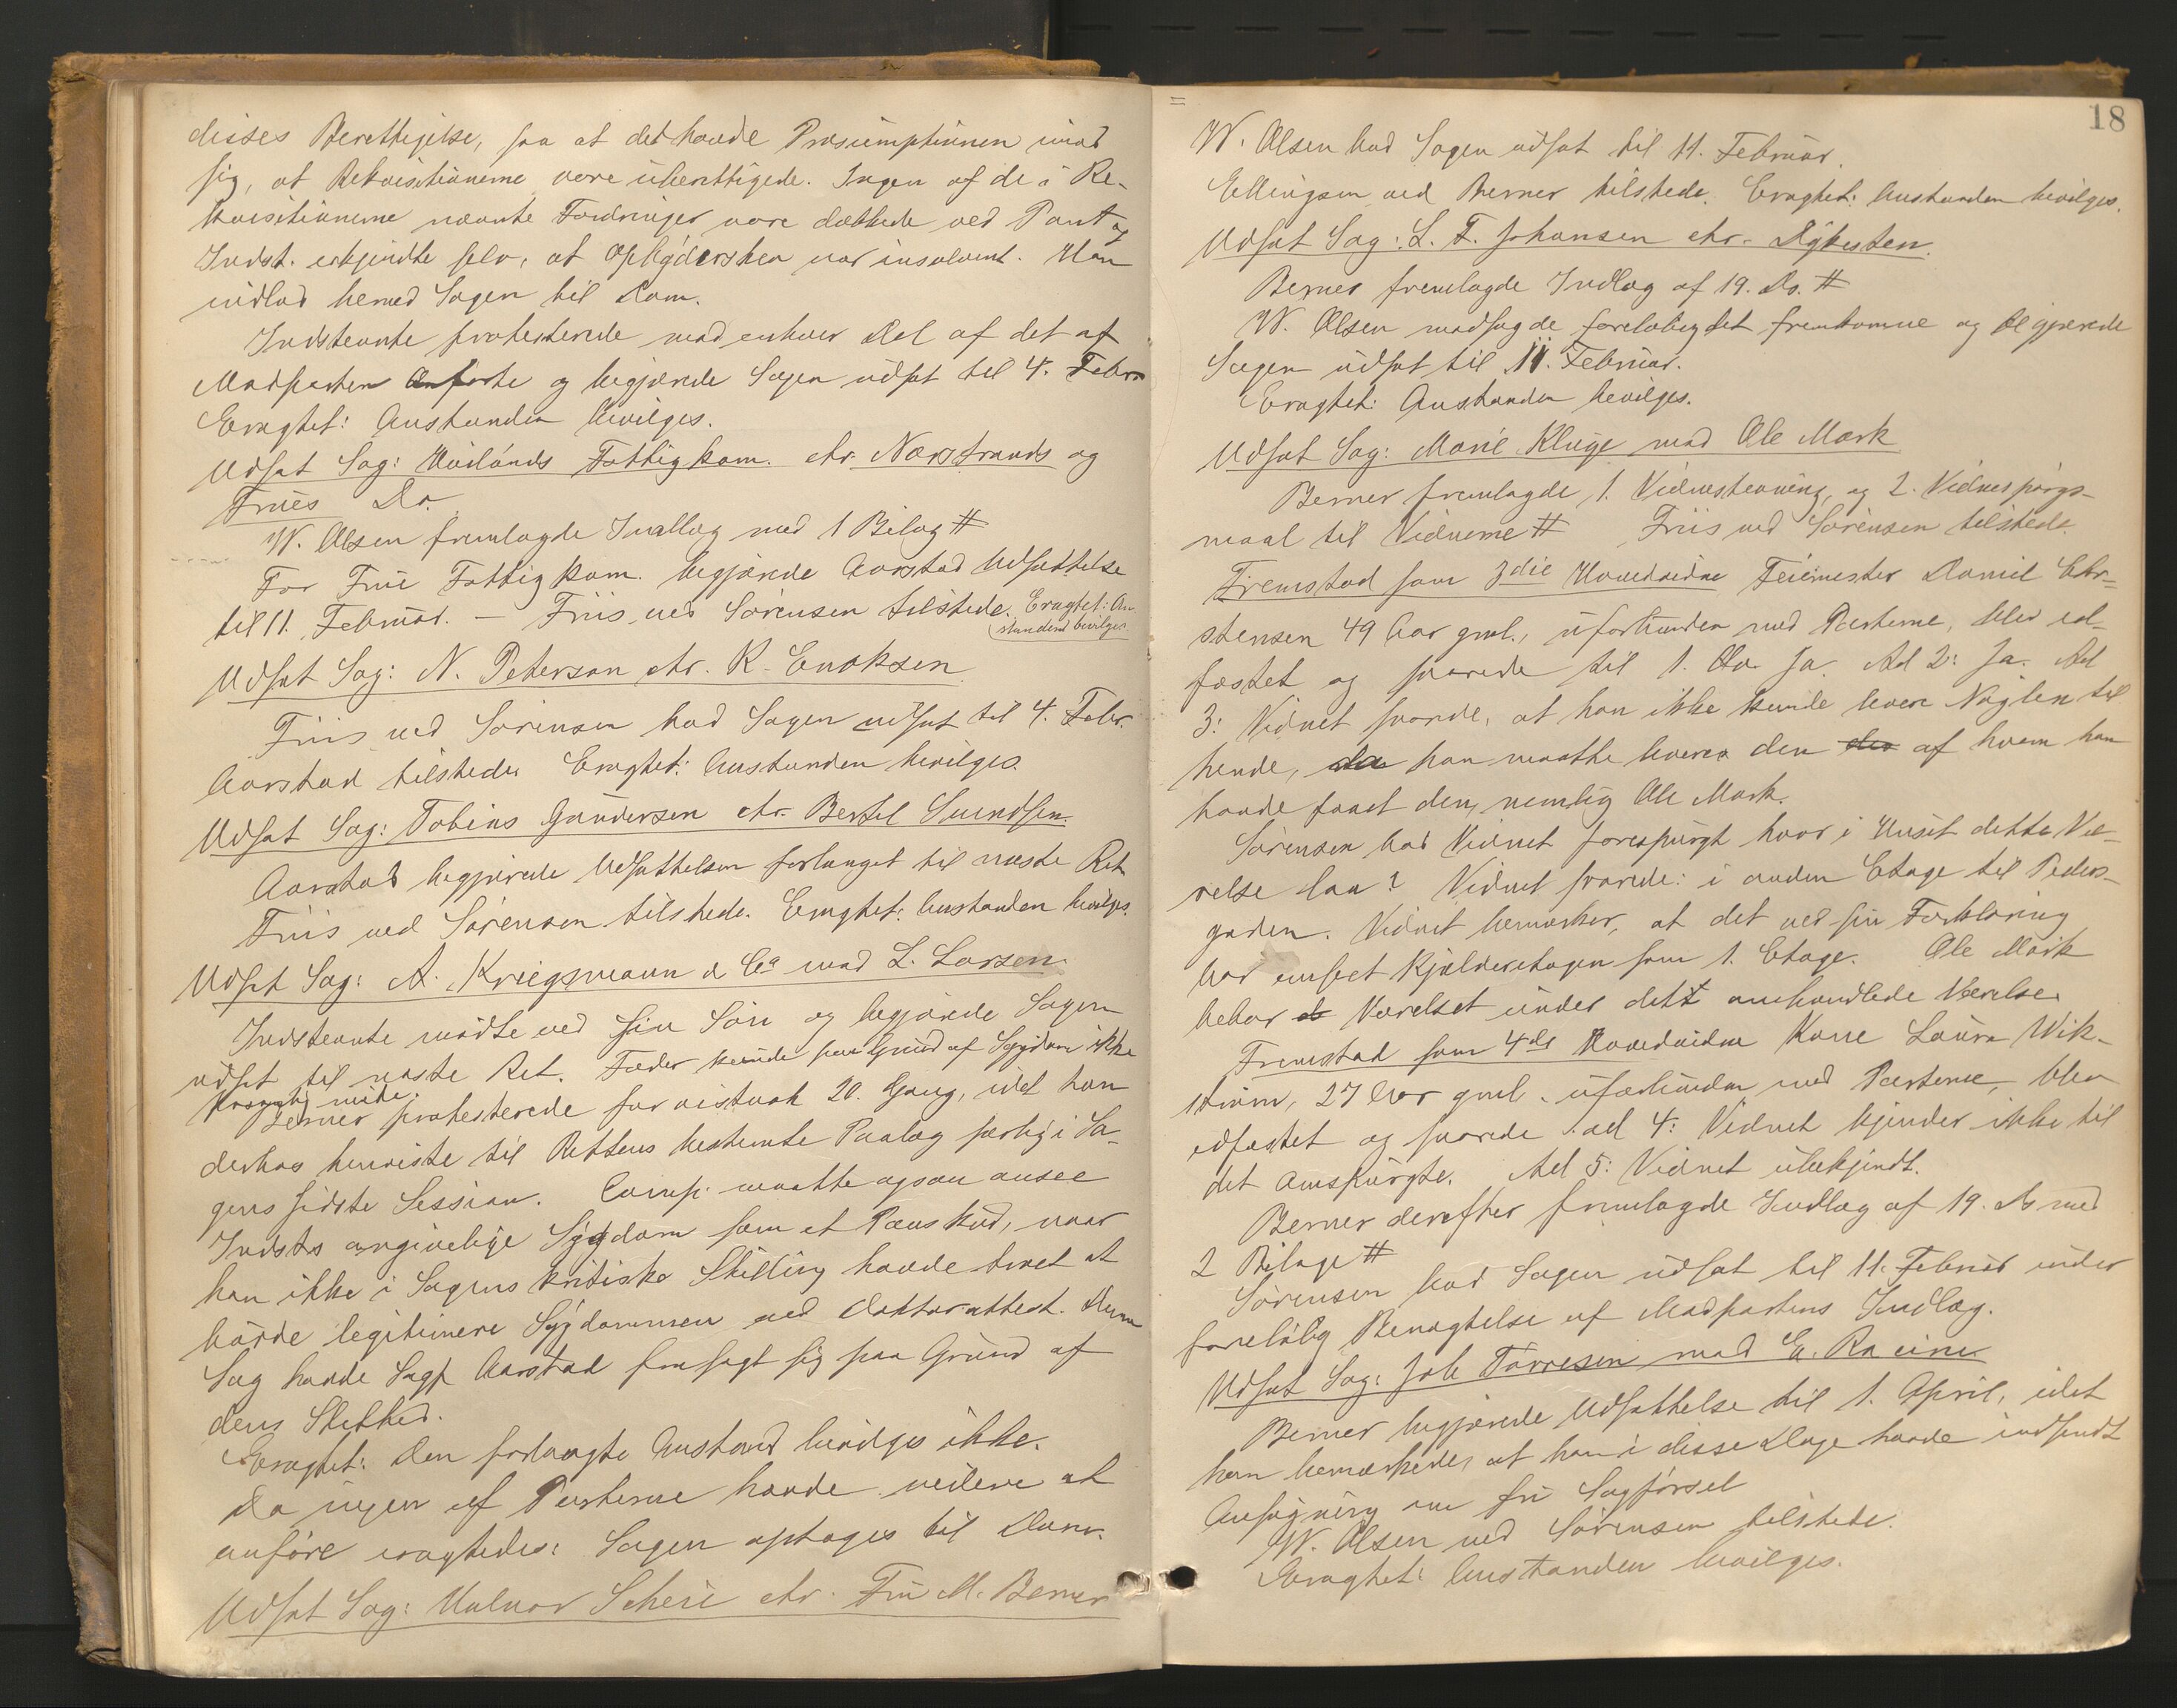 disses Berettigelse, saa at det havde Præsumptionen imod
sig, at Rekvisitionerne vare uberettigede. Ingen af de i Re-
kvisitionerne nævnte Fordringer vare dækkede ved Pant og
Indst. erkjendte selv, at Opbydersken var insolvent. Han
indlod hermed Sagen til Dom.
Indstevnte protesterede mod enhver Del af det af
Modparten Anførte og begjærede Sagen udsat til 4. Febr.
Eragtet: Anstanden bevilges.
Udsat Sag: Hetlands Fattigkom. ctr. Nærstrands og
Frues Do.
W. Olsen fremlagde Indlæg med 1 Bilag #
For Frue Fattigkom. begjærede Aarstad Udsættelse
til 11. Februar. – Friis ved Sørensen tilstede. Eragtet: An-
standen bevilges
Udsat Sag: N. Peterson ctr. K. Enoksen
Friis ved Sørensen bad Sagen udsat til 4. Febr.
Aarstad tilstede. Eragtet: Anstanden bevilges.
Udsat Sag: Tobias Gundersen ctr. Bertel Svendsen.
Aarstad begjærede Udsættelsen forlænget til næste Ret
Friis ved Sørensen tilstede. Eragtet: Anstanden bevilges.
Udsat Sag: A. Kriegsmann & Co mod L. Larsen.
Indstevnte mødte ved sin Søn og begjærede Sagen
udsat til næste Ret. Fader kunde paa Grund af Sygdom ikke
personlig møde.
Berner protesterede for vistnok 20. Gang, idet han
derhos henviste til Rettens bestemte Paalæg særlig i Sa-
gens sidste Session. Comp. maatte ogsaa ansee
Indsts angivelige Sygdom som et Paaskud, naar
han ikke i Sagens kritiske Stilling havde troet at
burde legitimere Sygdommen ved Doktorattest. Denne
Sag havde Sagf. Aarstad frasagt sig paa Grund af
dens Slethed.
Eragtet: Den forlangte Anstand bevilges ikke.
Da ingen af Parterne havde videre at
anføre eragtedes: Sagen optages til Dom.
Udsat Sag: Halvor Scheie ctr. Fru M. Berner
18
W. Olsen bad Sagen udsat til 11. Februar.
Ellingsen ved Berner tilstede. Eragtet: Anstanden bevilges.
Udsat Sag: L. F. Johansen ctr. Dykesten.
Berner fremlagde Indlæg af 19. Ds. #
W. Olsen modsagde foreløbig det fremkomne og begjærede
Sagen udsat til 11. Februar.
Eragtet: Anstanden bevilges.
Udsat Sag: Marie Kluge mod Ole Mork
Berner fremlagde 1. Vidnestevning, og 2. Vidnespørgs-
maal til Vidnerne # Friis ved Sørensen tilstede.
Fremstod som 3die Hovedvidne Feiemester Daniel Chr-
stensen 49 Aar gml., uforbunden med Parterne, blev ed-
fæstet og svarede til 1. Ja. Ad 2: Ja. Ad
3: Vidnet svarede, at han ikke kunde levere Nøglen til
hende, da han maatte levere den der af hvem han
havde faaet den, nemlig Ole Mork.
Sørensen bad Vidnet forespurgt hvor i Huset dette Væ-
relse laa? Vidnet svarede: i anden Etage til Peders-
gaden. Vidnet bemærker, at det ved sin Forklaring
har anseet Kjælderetagen som 1. Etage. Ole Mork
bebor Værelset under dett omhandlede Værelse.
Fremstod som 4de Hovedvidne Kone Laura Wik-
strøm, 27 Aar gml. uforbunden med Parterne, blev
edfæstet og svarede: ad 4: Vidnet kjender ikke til
det Omspurgte. Ad 5: Vidnet ubekjendt.
Berner derefter fremlagde Indlæg af 19. Ds med
2 Bilage #
Sørensen bad Sagen udsat til 11. Februar under
foreløbig Benægtelse af Modpartens Indlæg.
Udsat Sag: Job Tørresen mod E. Racine
Berner begjærede Udsættelse til 1. April, idet
han bemærkede, at han i disse Dage havde indsendt
Ansøgning om fri Sagførsel
W. Olsen ved Sørensen tilstede.
Eragtet: Anstanden bevilges.